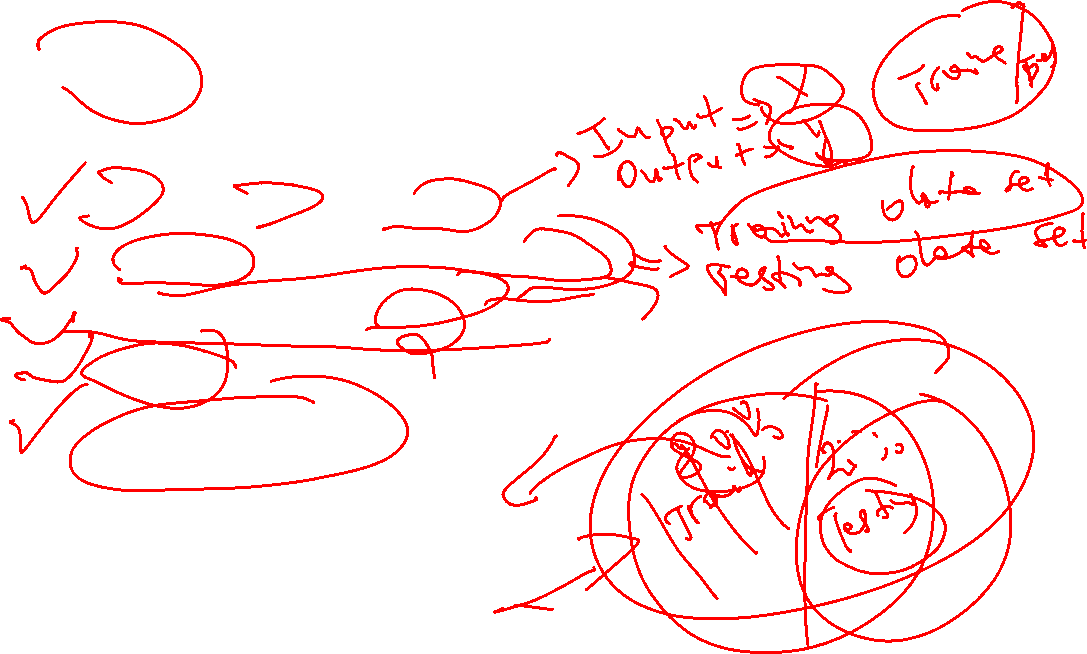 Input = X
Output = y
Traine
Training data set
Testing data set
80%
20%
Train
Testing